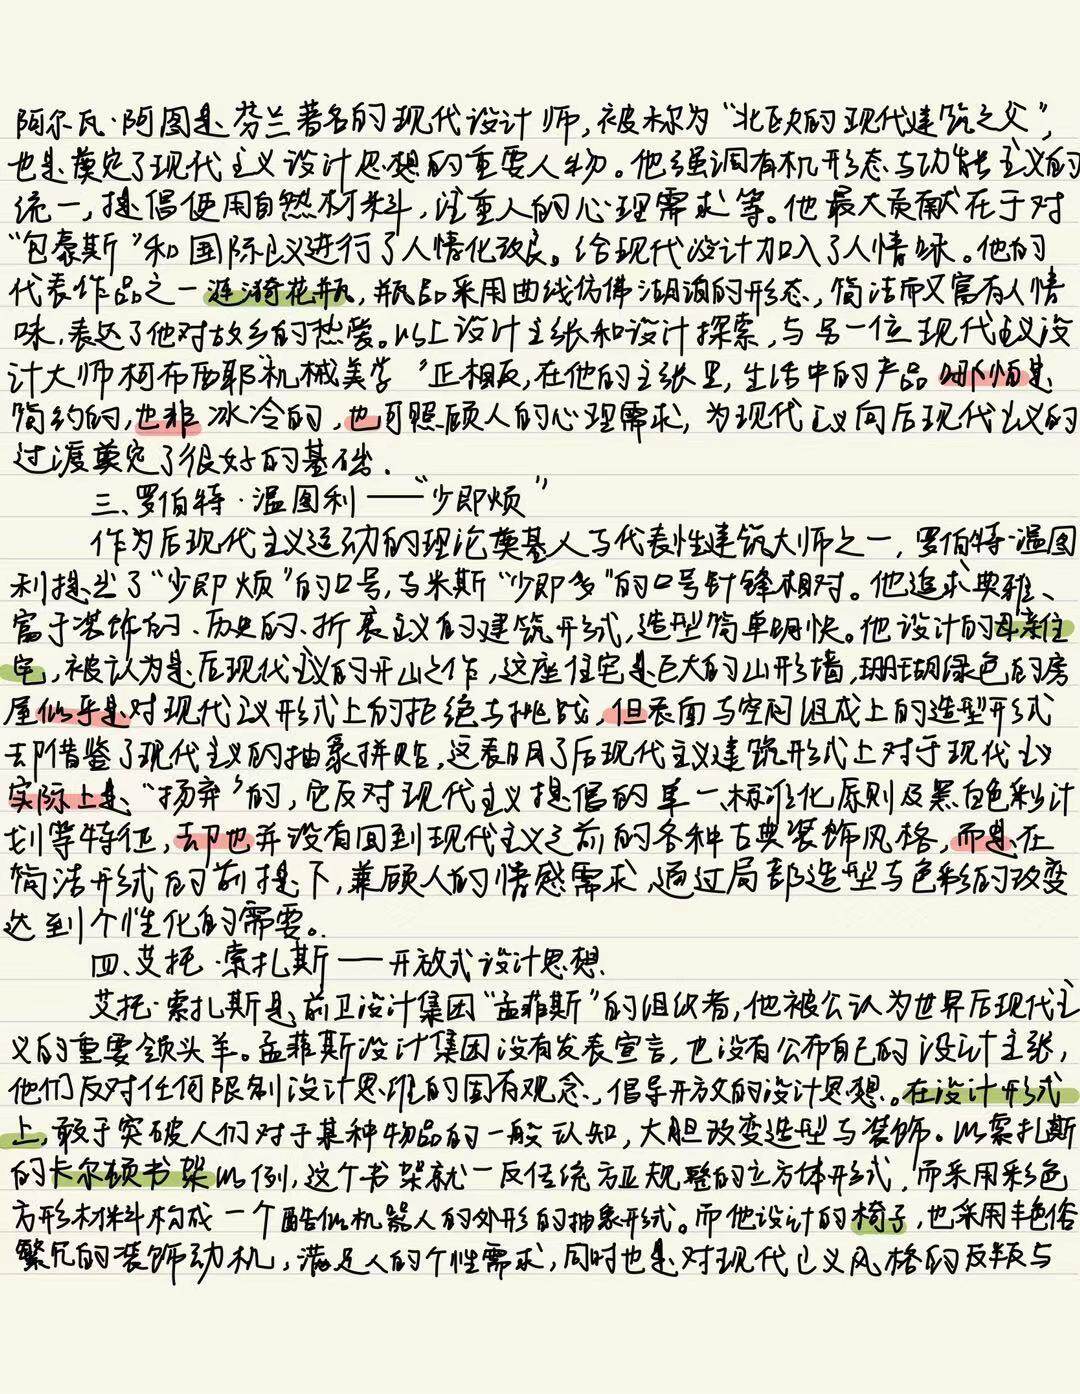 阿尔瓦·阿图是芬兰著名的现代设计师,被称为“北欧的现代建筑之父”,
也是奠定了现代主义设计思想的重要人物。他强调有机形态与功能主义的
统一,提倡使用自然材料,注重人的心理需求等。他最大贡献在于对
“包豪斯”和国际主义进行了人情化改良。给现代设计加入了人情味。他的
代表作品之一涟漪花瓶,瓶品采用曲线仿佛湖泊的形态,简洁而又富有人情
味,表达了他对故乡的热爱。以上设计主张和设计探索,与另一位现代主义设
计大师柯布西耶“机械美学”正相反,在他的主张里,生活中的产品哪怕是
简约的,也非冰冷的,也可照顾人的心理需求,为现代主义向后现代主义的
过渡奠定了很好的基础.
三、罗伯特·温图利——“少即烦”
作为后现代主义运动的理论奠基人与代表性建筑大师之一,罗伯特·温图
利提出了“少即烦”的口号,与米斯“少即多”的口号针锋相对。他追求典雅、
富于装饰的、历史的、折衷主义的建筑形式,造型简单明快。他设计的母亲住
宅,被认为是后现代主义的开山之作,这座住宅是巨大的山形墙,珊瑚绿色的房
屋似乎是对现代主义形式上的拒绝与挑战,但表面与空间组成上的造型形式
却借鉴了现代主义的抽象拼贴,这表明了后现代主义建筑形式上对于现代主义
实际上是“扬弃”的,它反对现代主义提倡的单一、标准化原则及黑白色彩计
划等特征,却也并没有回到现代主义之前的各种古典装饰风格,而是在
简洁形式的前提下,兼顾人的情感需求,通过局部造型与色彩的改变
达到个性化的需要。
四、艾托·索扎斯——开放式设计思想.
艾托·索扎斯是前卫设计集团“孟菲斯”的组织者,他被公认为世界后现代主
义的重要领头羊。孟菲斯设计集团没有发表宣言,也没有公布自己的设计主张,
他们反对任何限制设计思维的固有观念,倡导开放的设计思想。在设计形式
上,敢于突破人们对于某种物品的一般认知,大胆改变造型与装饰。以索扎斯
的卡尔顿书架以例,这个书架就一反传统方正规整的立方体形式,而采用彩色
方形材料构成一个酷似机器人的外形的抽象形式。而他设计的椅子,也采用丰色俗
繁冗的装饰动机,满足人的个性需求,同时也是对现代主义风格的反叛与